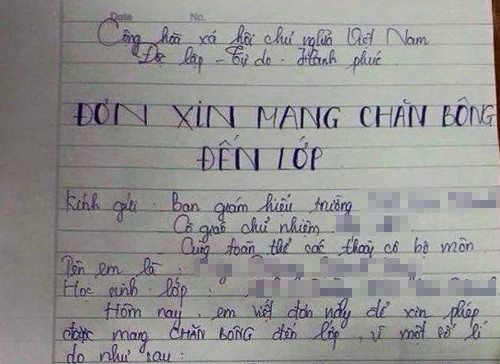 Date No.
Cộng hòa xã hội chủ nghĩa Việt Nam
Độc lập - Tự do - Hạnh phúc
ĐƠN XIN MANG CHĂN BÔNG
ĐẾN LỚP
Kính gửi: Ban giám hiệu trường
Cô giáo chủ nhiệm
Cùng toàn thể các thầy cô bộ môn
Tên em là:
Học sinh lớp:
Hôm nay, em viết đơn này để xin phép
được mang CHĂN BÔNG đến lớp, vì một số lí
do như sau: